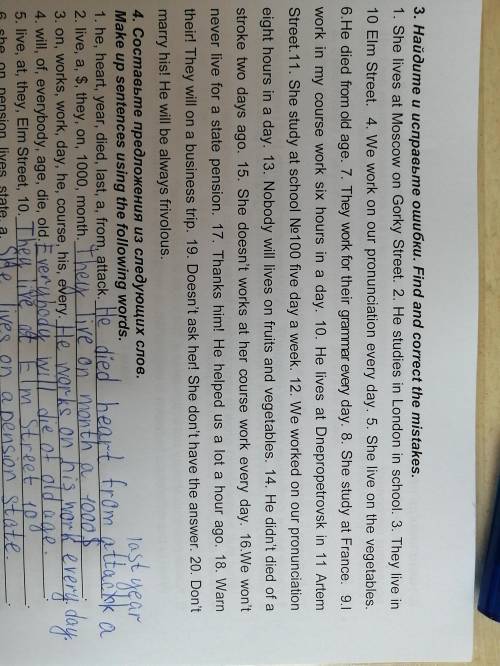 3. Найдите и исправьте ошибки. Find and correct the mistakes.
1. She lives at Moscow on Gorky Street. 2. He studies in London in school. 3. They live in
10 Elm Street. 4. We work on our pronunciation every day. 5. She live on the vegetables.
6.He died from old age. 7. They work for their grammar every day. 8. She study at France. 9.I
work in my course work six hours in a day. 10. He lives at Dnepropetrovsk in 11 Artem
Street.11. She study at school №100 five day a week. 12. We worked on our pronunciation
eight hours in a day. 13. Nobody will lives on fruits and vegetables. 14. He didn't died of a
stroke two days ago. 15. She doesn't works at her course work every day. 16.We won't
never live for a state pension. 17. Thanks him! He helped us a lot a hour ago. 18. Warn
their! They will on a business trip. 19. Doesn't ask her! She don't have the answer. 20. Don't
marry his! He will be always frivolous.
4. Составьте предложения из следующих слов.
Make up sentences using the following words.
last year
1. he, heart, year, died, last, a, from, attack. He died heart from attack a
2. live, a, $, they, on, 1000, month. They live on month a 1000$
3. on, works, work, day, he, course, his, every. He works on his work every day.
4. will, of, everybody, age, die, old. Everybody will die of old age.
5. live, at, they, Elm Street, 10. They live at Elm Street 10.
6. she, on, pension, lives, state, a. She lives on a pension state.